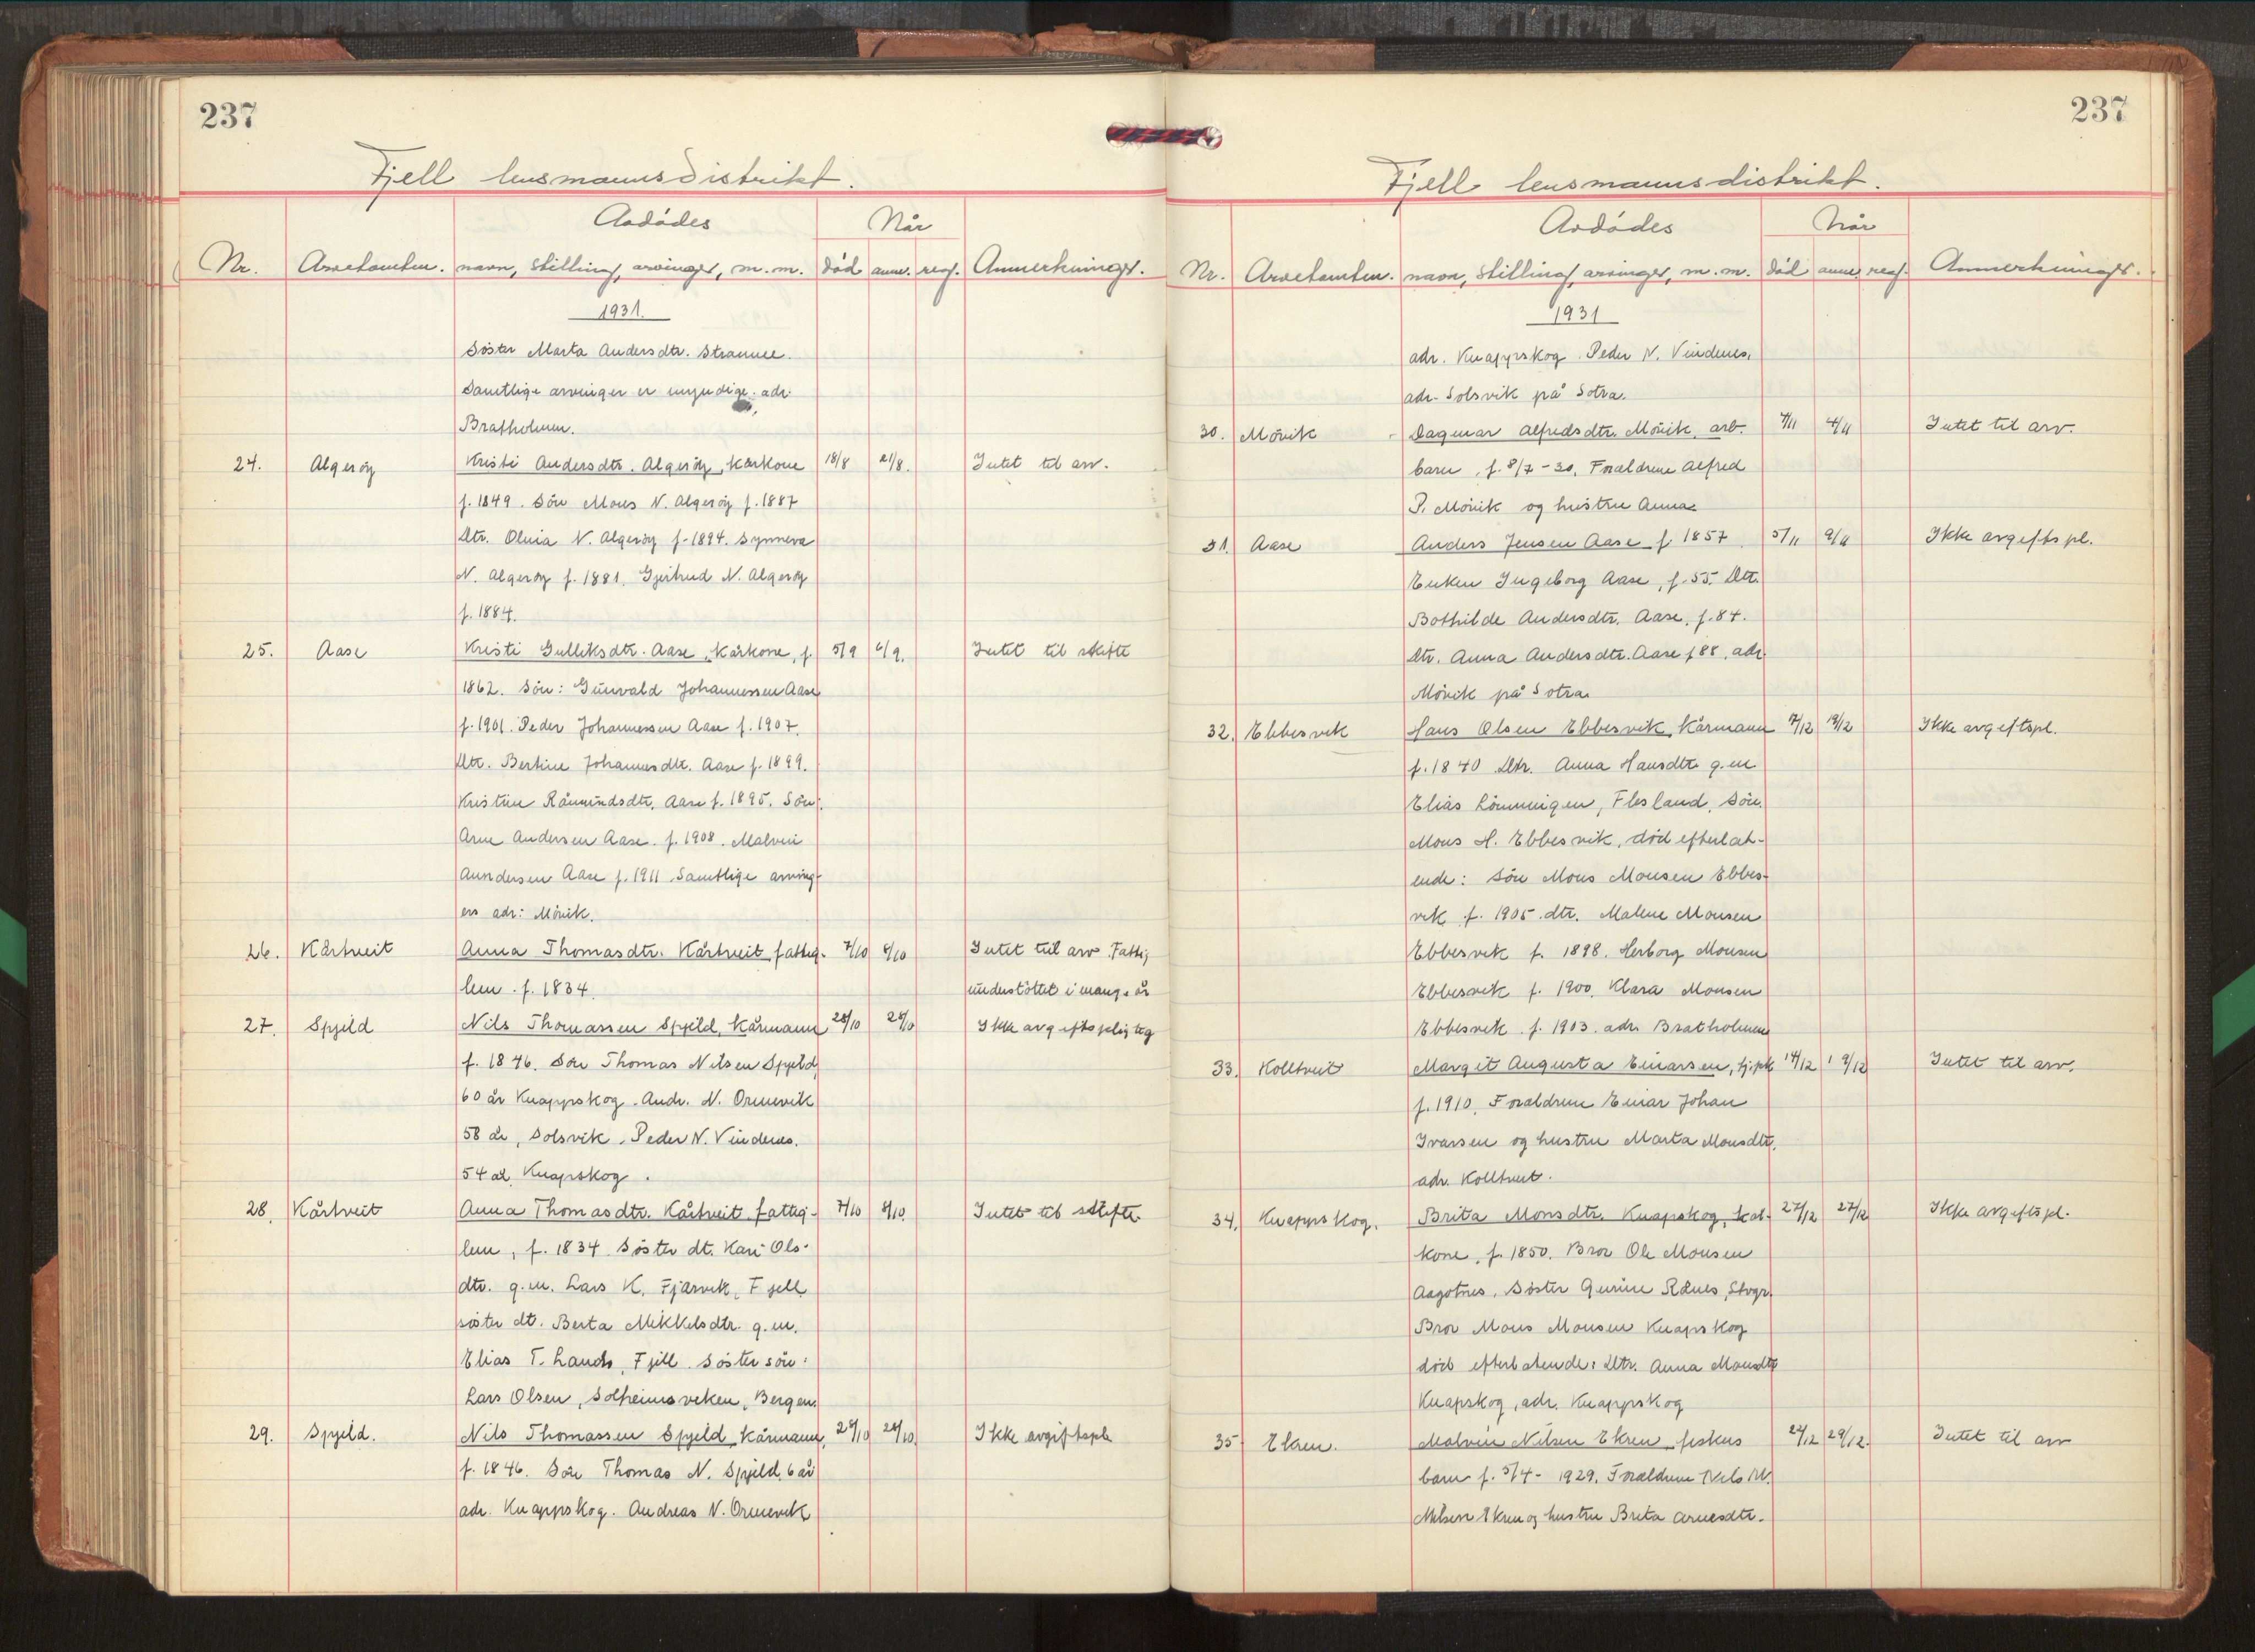 237
Fjell lensmannsdistrikt.
Avdödes
Når
Nr. Arvetomten. navn, stilling, arvinger, m.m. död anm. reg. Anmerkninger.
1931.
Söster Marta Andersdtr. Straume.
Samtlige arvinger er umyndige. adr.
Bratholmen.
24. Algeröy Kristi Andersdtr. Algeröy, kårkone 18/8 21/8. Intet til arv.
f. 1849. Sön Mons N. Algeröy f. 1887
Dtr. Olivia N. Algeröy f. 1894. Synneva
N. Algeröy f. 1881. Gjertrud N. Algeröy
f. 1884.
25. Aase Kristi Gulliksdtr. Aase, kårkone, f. 5/9 6/9. Intet til skifte
1862. Sön: Gunvald Johannessen Aase
f. 1901. Peder Johannessen Aase f. 1907.
Dtr. Bertine Johannesdtr. Aase f. 1899.
Kristine Råmundsdtr. Aase f. 1895. Sön:
Arne Andersen Aase f. 1908. Malvin
Aundersen Aase f. 1911. Samtlige arving-
ers adr: Mövik.
26. Kårtveit Anna Thomasdtr. Kårtveit fattig- 7/10 8/10 Intet til arv. Fattig
lem. f. 1834. understöttet i mange år
27. Spjeld Nils Thomassen Spjeld, kårmann 28/10 28/10 Ikke avgiftspligtig
f. 1846. Sön Thomas Nilsen Spjeld,
60 år Knappskog. Andr. N. Ormevik
58 år, Solsvik. Peder N. Vindenes.
54 år. Knapskog.
28. Kårtveit Anna Thomasdtr. Kårtveit fattig- 7/10 8/10. Intet til skifte
lem, f. 1834. Söster dt. Kari Ols-
dtr. g.m. Lars K. Fjærvik, Fjell
söster dt. Berta Mikkelsdtr. g.m.
Elias T. Lands, Fjell. Söster sön:
Lars Olsen, Solheimsviken, Bergen.
29. Spjeld. Nils Thomassen Spjeld, kårmann, 28/10 28/10. Ikke avgiftspl.
f. 1846. Sön Thomas N. Spjeld, 6 år
adr. Knappskog. Andreas N. Ormevik
237
Fjell lensmannsdistrikt.
Avdödes
Når
Nr. Arvetomten. navn, stilling, arvinger, m.m. död anm. reg. Anmerkninger.
1931
adr. Knappskog. Peder N. Vindenes,
adr. Solsvik på Sotra.
30. Mövik Dagmar Alfredsdtr. Mövik, arb. 4/11 Intet til arv.
barn, f. 8/7-30. Forældrene Alfred
P. Mövik og hustru Anna
31. Aase Anders Jensen Aase f. 1857 5/11 9/11 Ikke avgiftspl.
Enken Ingeborg Aase, f. 55. Dtr.
Bothilde Andersdtr. Aase, f. 84.
Dtr. Anna Andersdtr. Aase f 88, adr.
Mövik på Sotra
32. Ebbesvik Hans Olsen Ebbesvik, kårmann 7/12 19/12 Ikke avgiftspl.
f. 1840. Dtr. Anna Hansdtr. g.m
Elias Lönningen, Flesland. Sön.
Mons H. Ebbesvik, död efterlat-
ende: Sön Mons Monsen Ebbes-
vik f. 1905. dtr. Malene Monsen
Ebbesvik f. 1898. Herborg Monsen
Ebbesvik f. 1900. Klara Monsen
Ebbesvik f. 1903. adr. Bratholmen
33. Kolltveit Margit Augusta Einarsen, tj.pk 14/12 19/12 Intet til arv.
f. 1910. Forældrene Einar Johan
Ivarsen og hustru Marta Monsdtr.
adr. Kolltveit.
34. Knappskog. Brita Monsdtr. Knapskog, kål- 27/12 27/12 Ikke avgiftspl.
kone, f. 1850. Bror Ole Monsen
Aagotnes. Söster Gurine Stvgr.
Bror Mons Monsen Knapskog
död efterlatende: Dtr. Anna Monsdtr
Knapskog, adr. Knappskog
35 Ekren. Malvin Nilsen Ekren, fiskers 29/12. Intet til arv
barn f. 5/4-1929. Forældrene Nils M.
Nilsen Ekren og hustru Brita Arnesdtr.